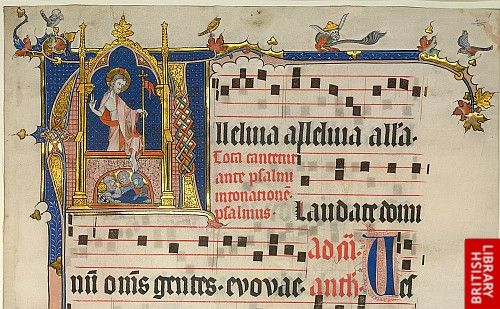 lleluia alleluia alla·
Tota cantetur
ante psalmi
intonationē·
psalmus·
Laudate domi
nū om̄s gentes · evovae ·
ad
anth·
BRITISH
LIBRARY